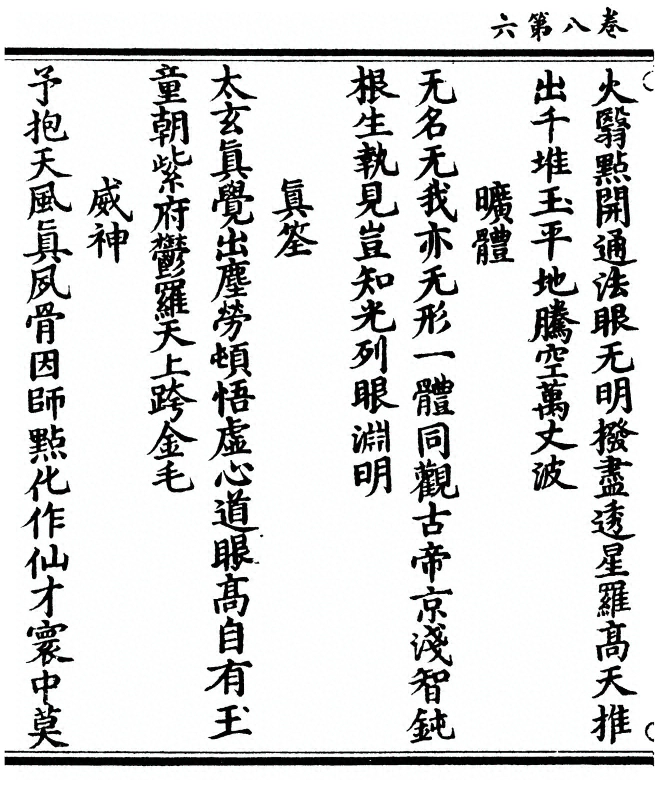 卷八第六
火翳點開通法眼无明撥盡透星羅高天推
出千堆玉平地騰空萬丈波
曠體
无名无我亦无形一體同觀古帝京淺智鈍
根生執見豈知光列眼淵明
眞筌
太玄眞覺出塵勞頓悟虛心道眼高自有玉
童朝紫府鬱羅天上跨金毛
威神
予抱天風眞夙骨因師點化作仙才寰中莫